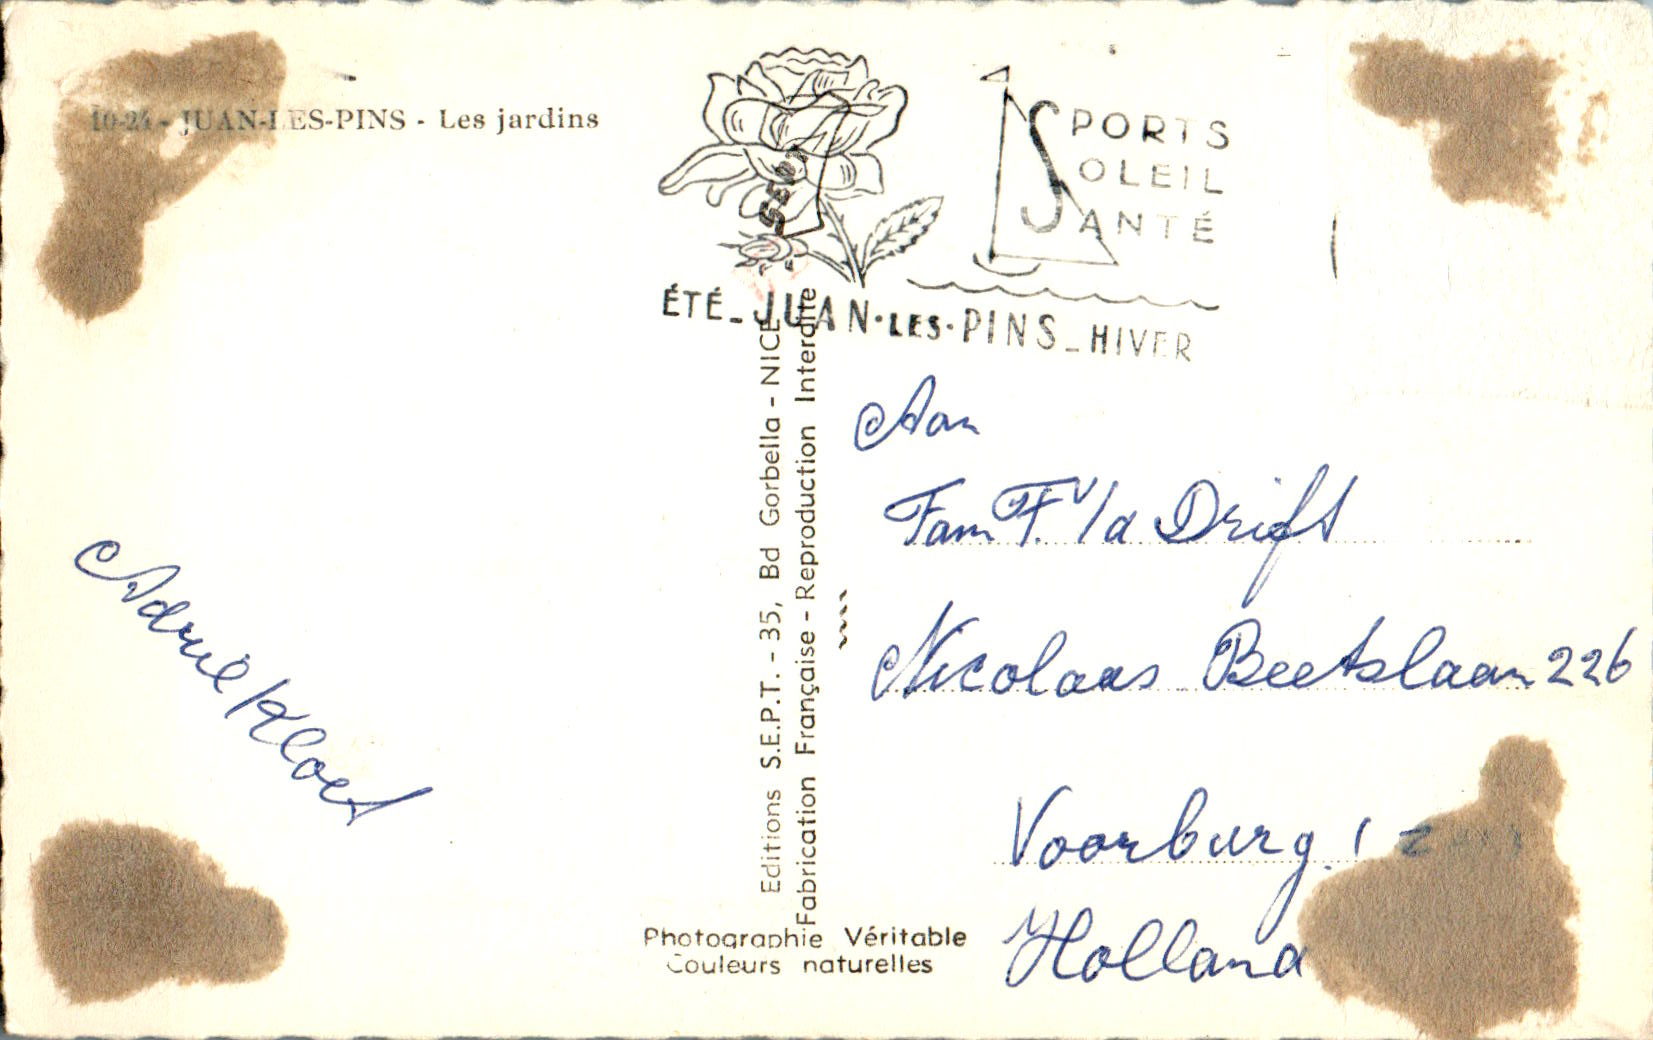 10-24 - JUAN-LES-PINS - Les jardins
SPORTS
SOLEIL
SANTÉ
ÉTÉ_JUAN·LES·PINS_HIVER
SEPT
Editions S.E.P.T. - 35, Bd Gorbella - NICE
Fabrication Française - Reproduction Interdite
Aan
Fam F. v/d Drift
Nicolaas Beetslaan 226
Voorburg
Holland
Adrie Kloet
Photographie Véritable
Couleurs naturelles